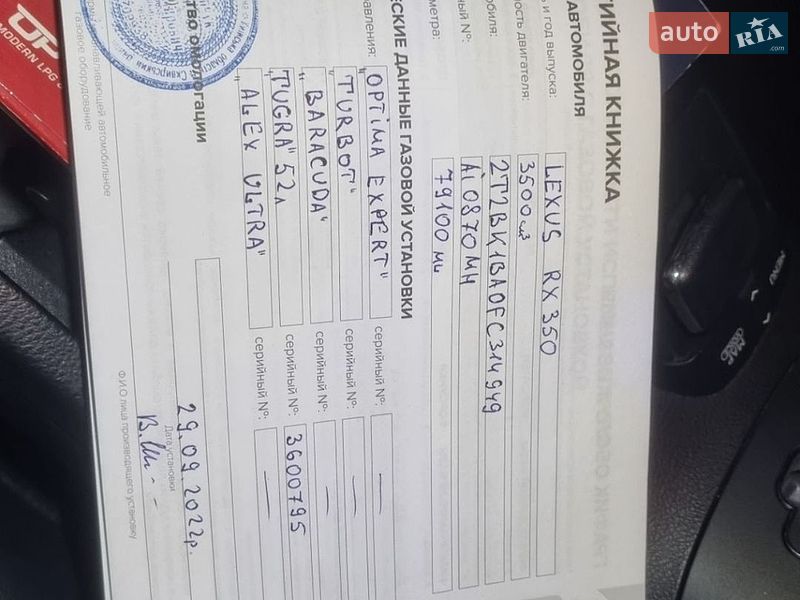 ТИЙНАЯ КНИЖКА
АВТОМОБИЛЯ
и год выпуска:
LEXUS RX 350
ность двигателя:
3500 см³
обиля:
2T2BK1BA0FC314949
ный №:
АІ0870МН
метра:
79100 ми
ЕСКИЕ ДАННЫЕ ГАЗОВОЙ УСТАНОВКИ
авления:
"OPTIMA EXPERT"
серийный №:
—
"TURBOT"
серийный №:
—
"BARACUDA"
серийный №:
—
"TUGRA" 52л
серийный №:
3600795
"ALEX ULTRA"
серийный №:
—
ство омологации
29.09.2022р.
Дата установки
авливающей автомобильное
газовое оборудование
Ф.И.О лица производящего установку
MODERN LPG
auto
RIA
.com
MENU